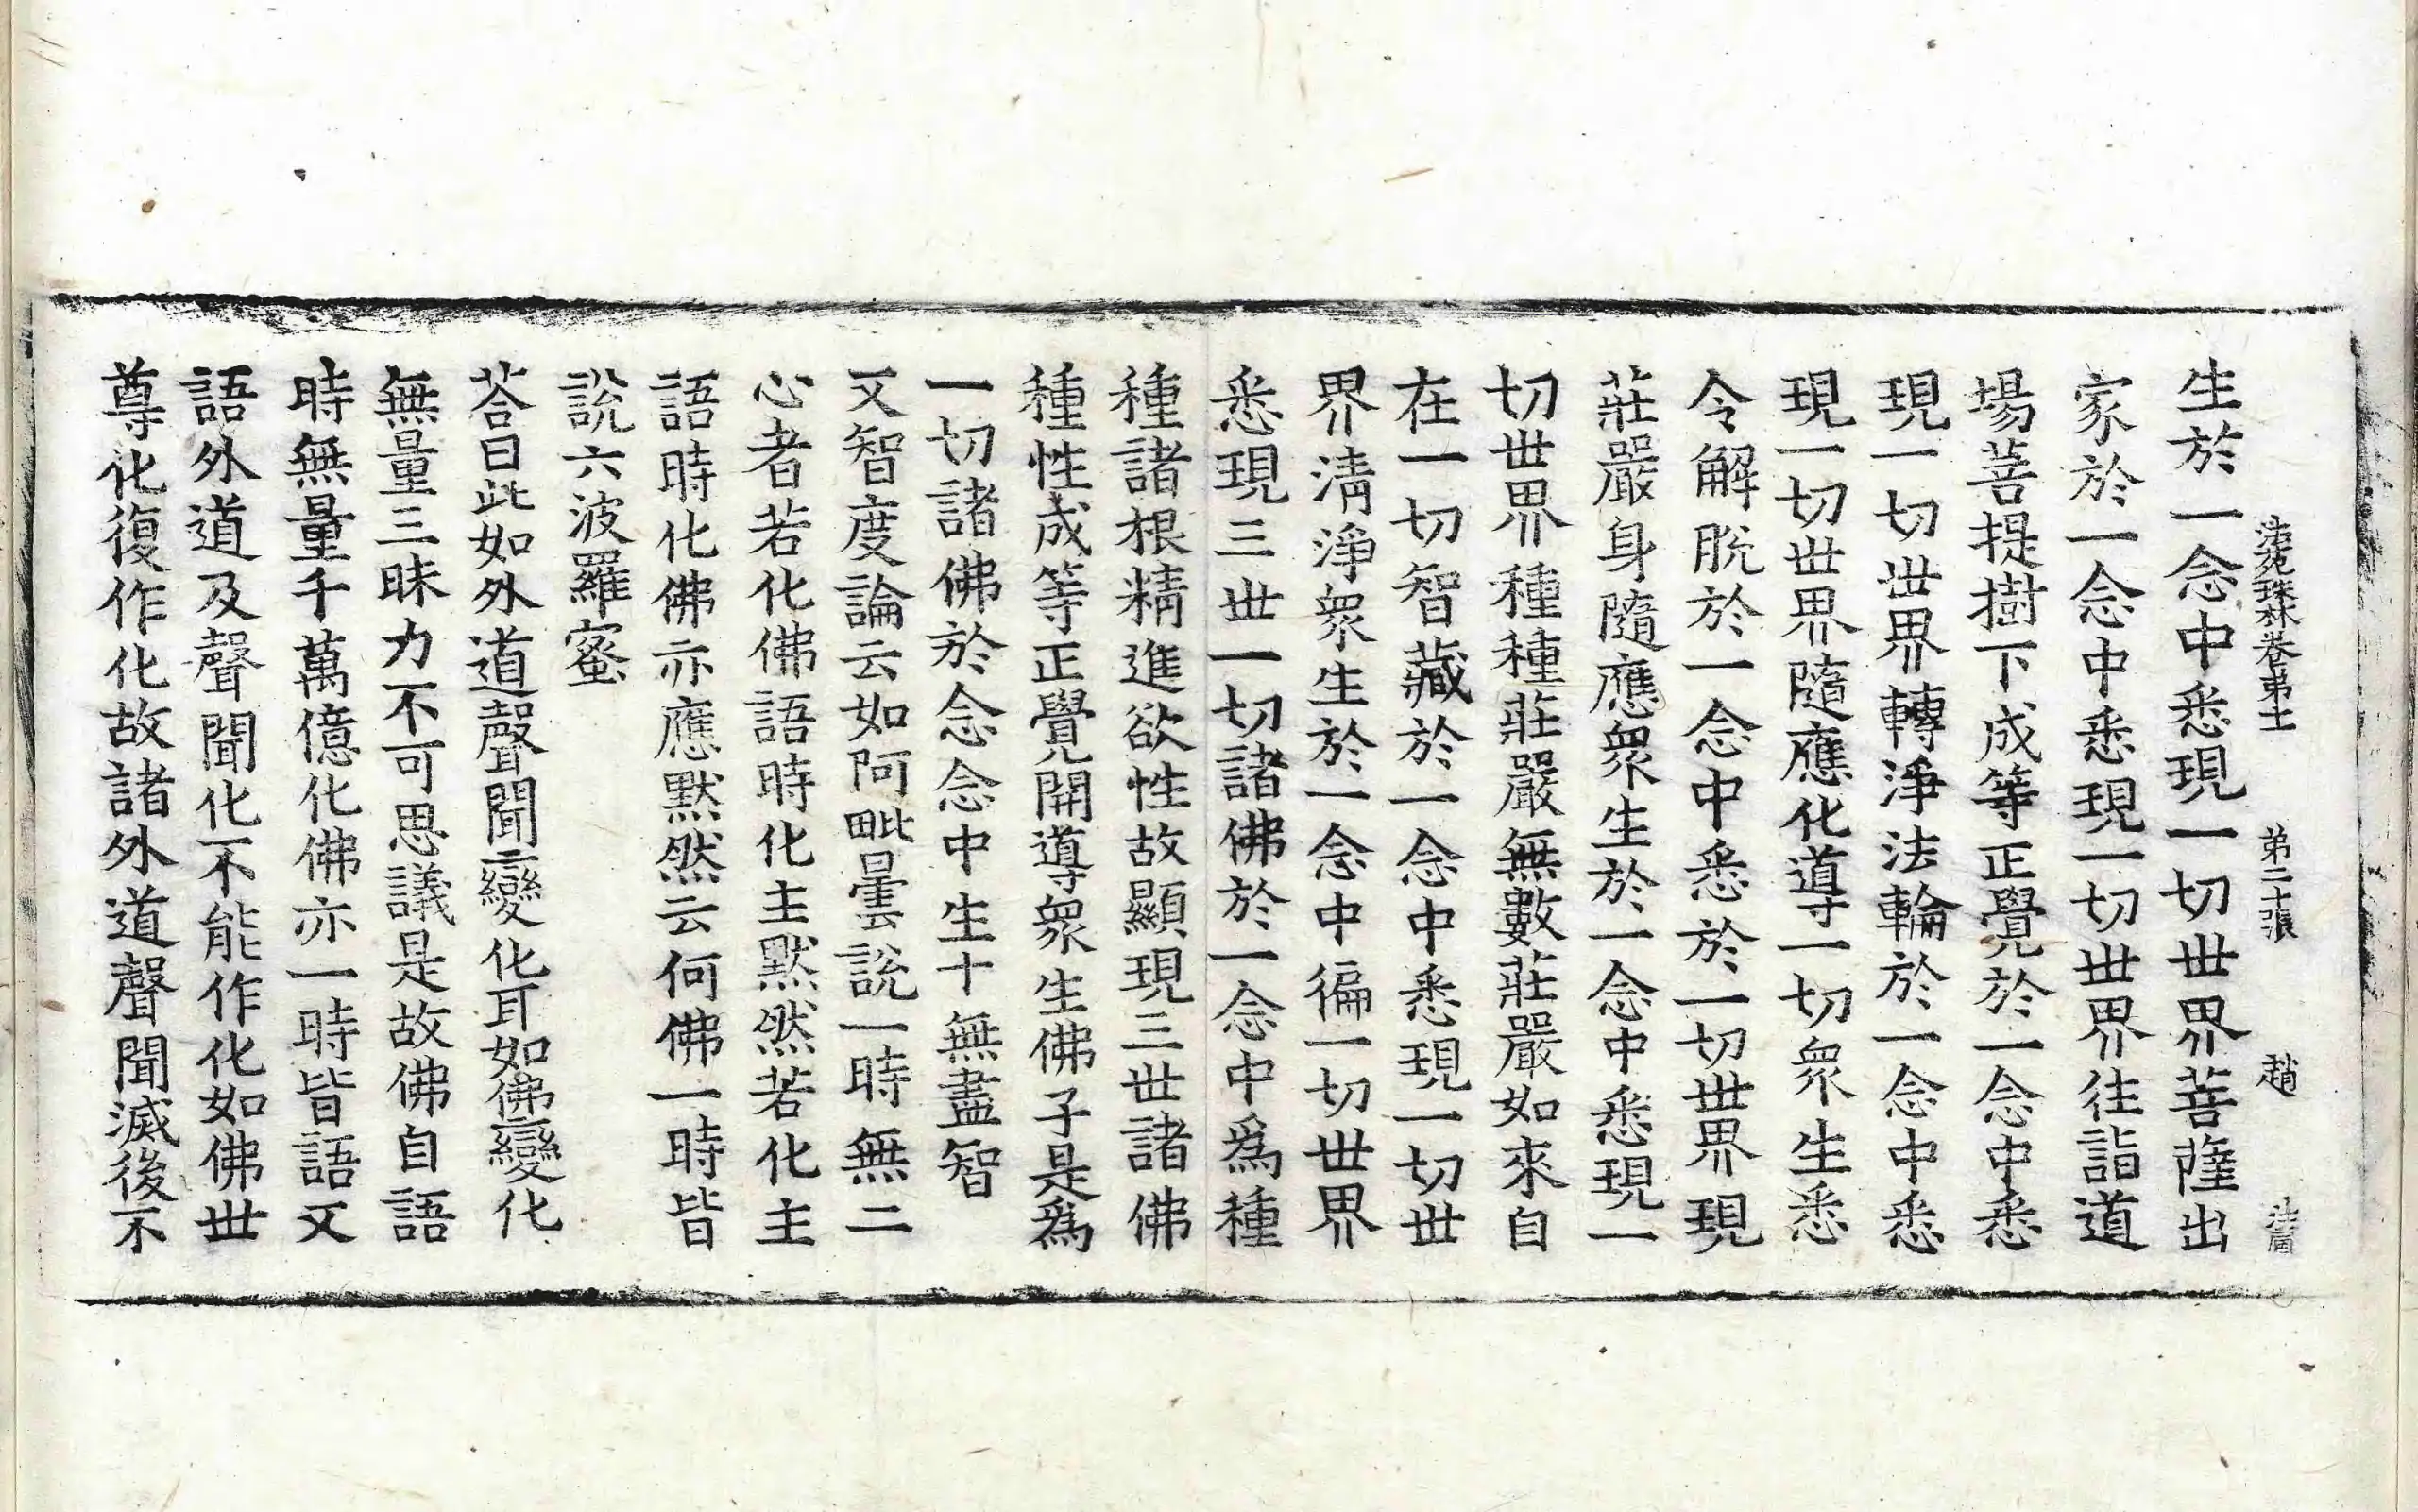 生於一念中悉現一切世界菩薩出
法苑珠林卷第十二 第二十張 趙
家於一念中悉現一切世界往詣道
場菩提樹下成等正覺於一念中悉
現一切世界轉淨法輪於一念中悉
現一切世界隨應化導一切衆生悉
令解脫於一念中悉於一切世界現
莊嚴身隨應衆生於一念中悉現一
切世界種種莊嚴無數莊嚴如來自
在一切智藏於一念中悉現一切世
界淸淨衆生於一念中徧一切世界
悉現三世一切諸佛於一念中爲種
種諸根精進欲性故顯現三世諸佛
種性成等正覺開導衆生佛子是爲
一切諸佛於念念中生十無盡智
又智度論云如阿毗曇說一時無二
心者若化佛語時化主默然若化主
語時化佛亦應默然云何佛一時皆
說六波羅蜜
荅曰此如外道聲聞變化耳如佛變化
無量三昧力不可思議是故佛自語
時無量千萬億化佛亦一時皆語又
語外道及聲聞化不能作化如佛世
尊化復作化故諸外道聲聞滅後不